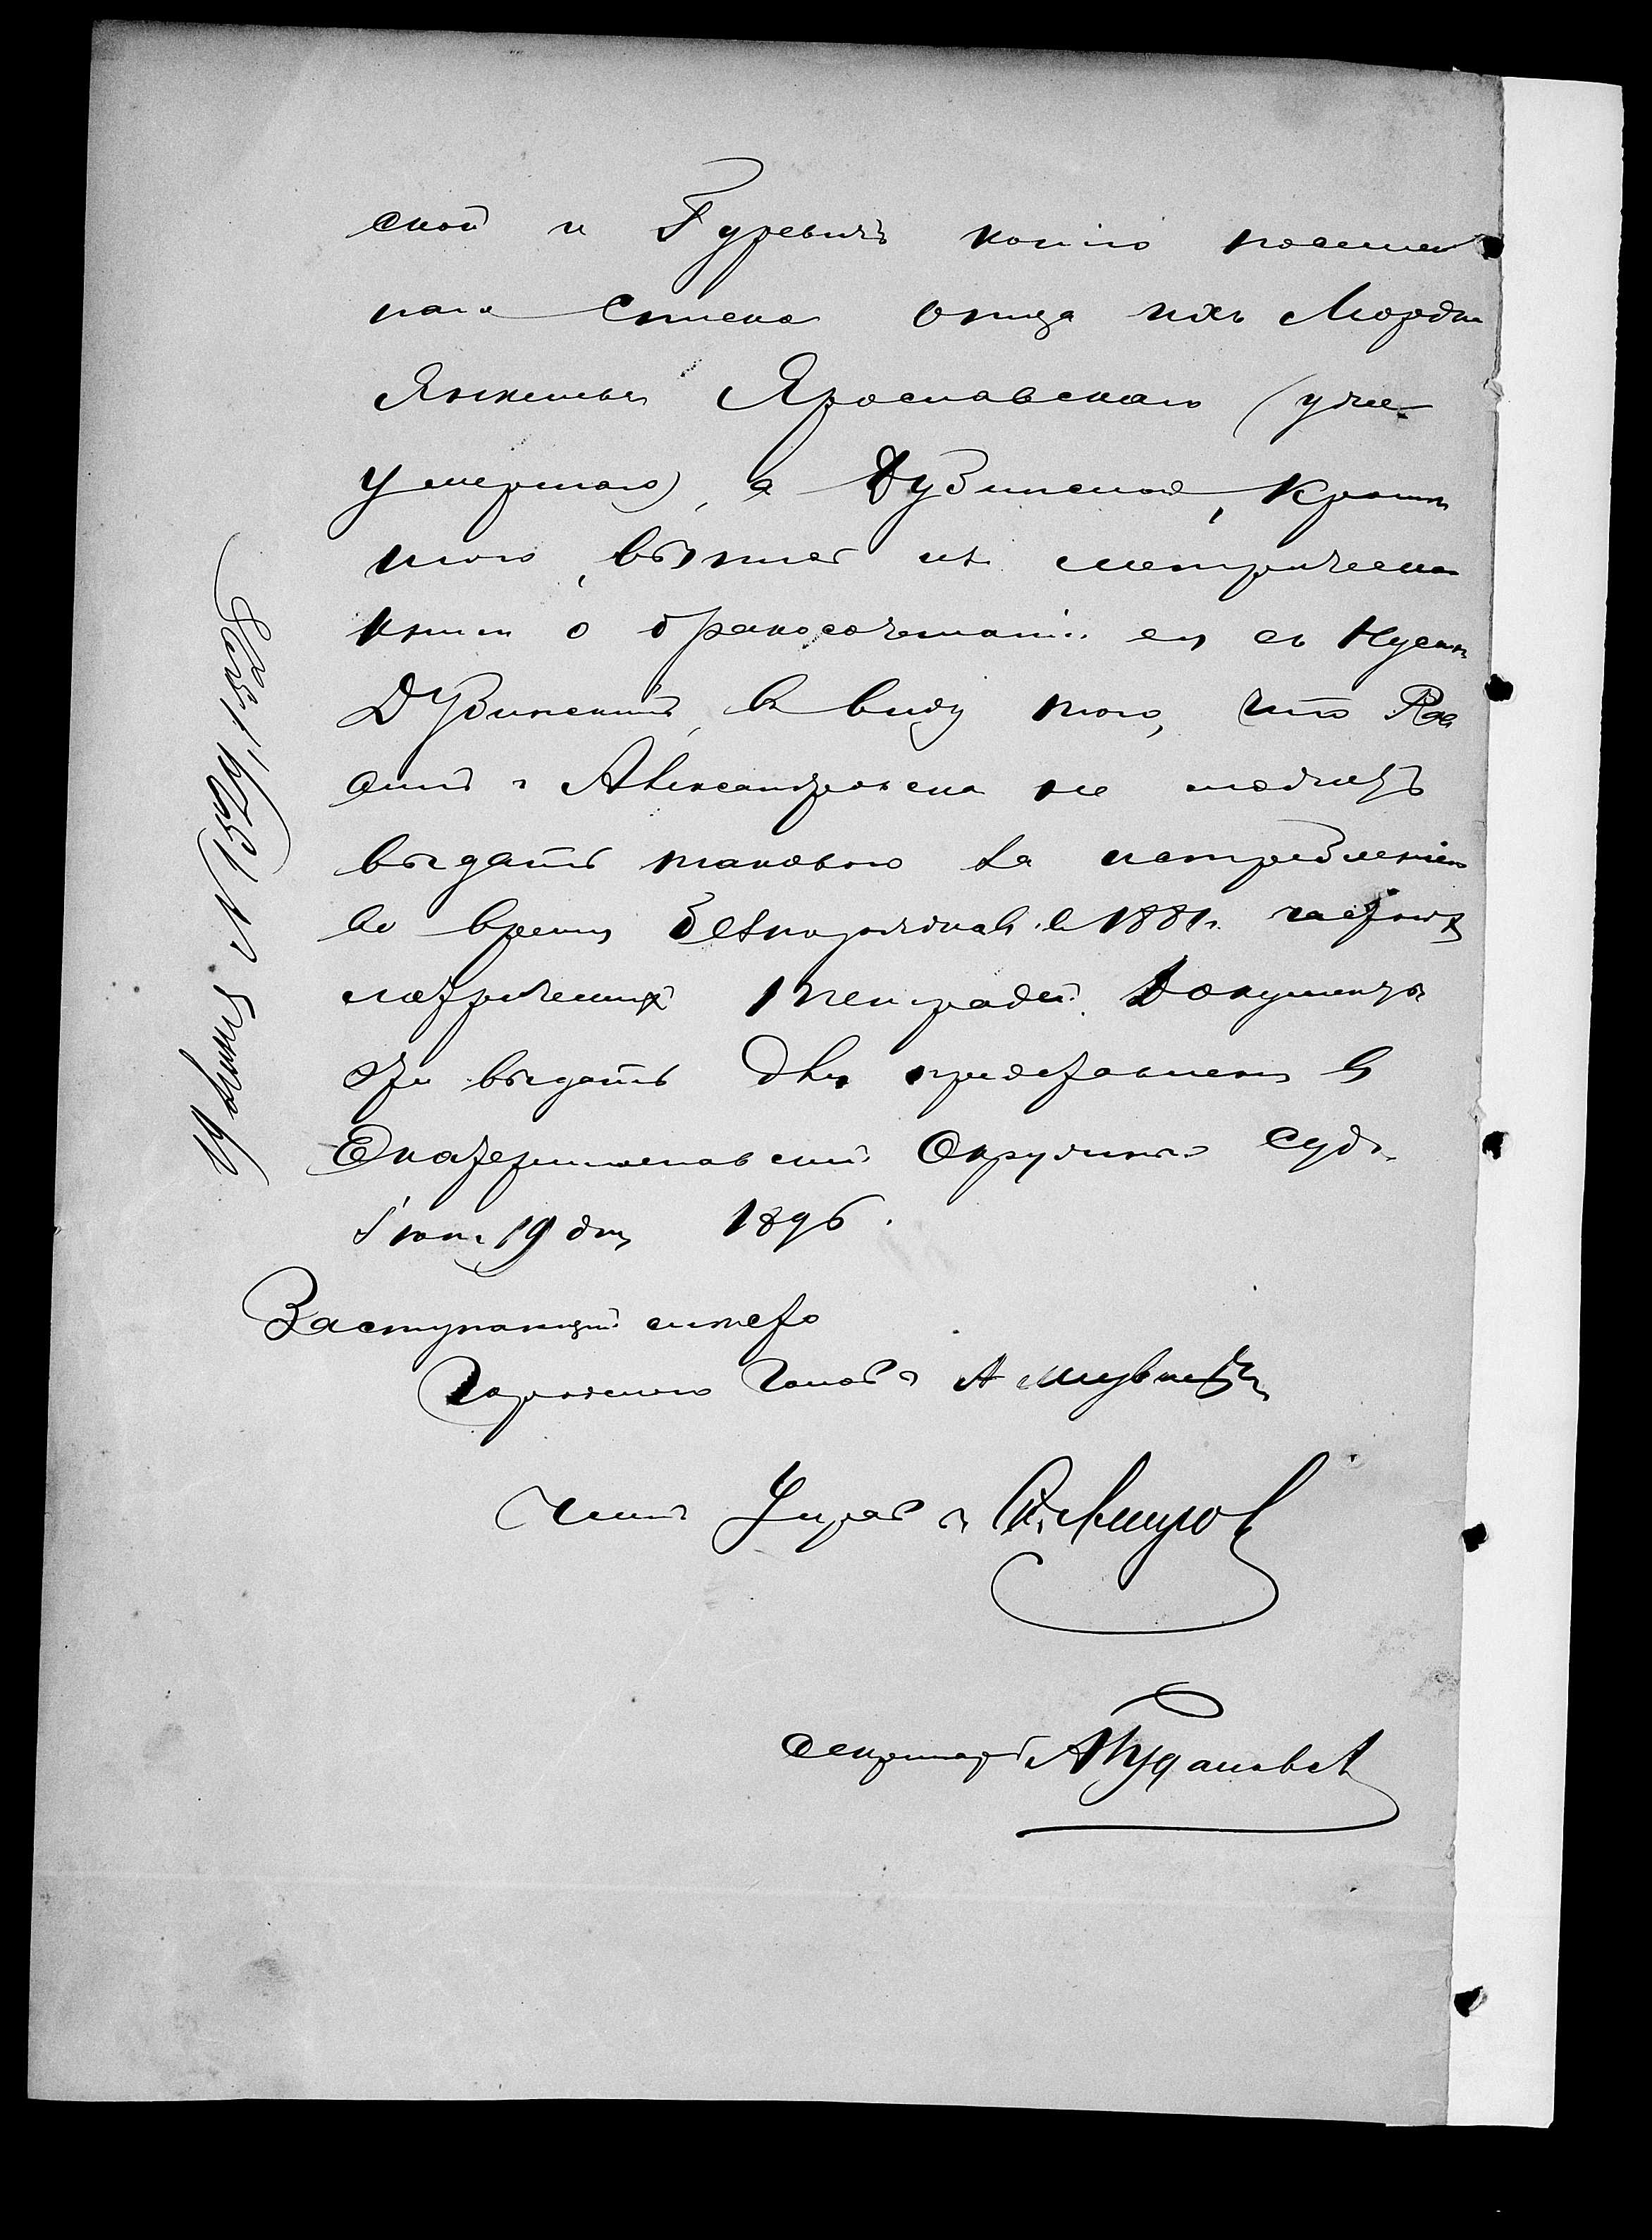 ской и Гуревичъ копію посемей
наго списка отца ихъ Мордка
Янкелева Ярославскаго (уже
умершаго), а Дубинской, кромѣ
того, выпись изъ метрической
книги о бракосочетаніи ея съ
Дубинскимъ, въ виду того, что Рав
винъ г. Александровска не можетъ
выдать таковую за истребленіемъ
во время безпорядковъ въ 1881 г.
метрическихъ тетрадей. Документы
эти выдать для представленія въ
Екатеринославскій Окружный Судъ.
Іюня 19 дня 1896.
Заступающій мѣсто
Городского Головы А
Членъ Управы
Секретарь
19 Іюня № 1527, 1528